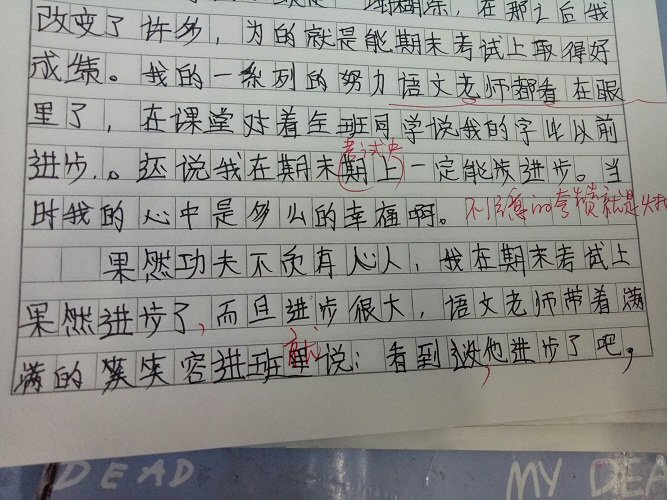 糊涂，在那之后我
改变了许多，为的就是能期末考试上取得好
成绩。我的一系列的努力语文老师都看在眼
里了，在课堂对着全班同学说我的字比以前
考试中
进步，。还说我在期末期上一定能够进步。当
时我的心中是多么的幸福啊。不经意的夸赞就是
果然功夫不负有心人，我在期末考试上
果然进步了，而且进步很大，语文老师带着满
满的笑容进班里说：看到没他进步了吧，
就
DEAD
MY DEA